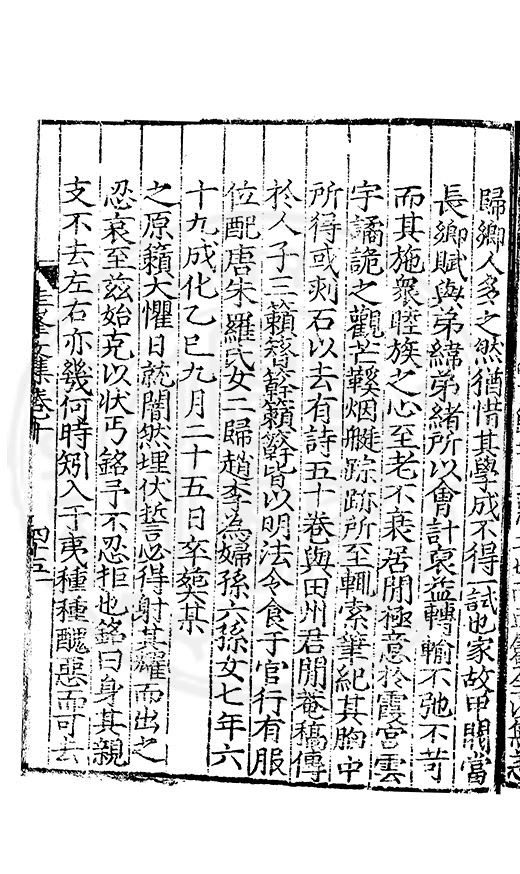 歸鄉人多之然猶惜其學成不得一試也家故甲閥當
長鄉賦與弟緯弟緒所以會計裒益轉輸不弛不苛
而其施衆睦族之心至老不衰居閒極意於霞宮雲
宇譎詭之觀芒鞵烟艇踪跡所至輒索筆紀其胸中
所得或刻石以去有詩五十卷與田州君閒菴稿傳
於人子三籟簧籟皆以明法令食于官行有服
位配唐朱羅氏女二歸趙李為婦孫六孫女七年六
十九成化乙巳九月二十五日卒葬某
之原籟大懼日就闇然埋伏誓必得射其耀而出之
忍哀至茲始克以狀丐銘予不忍拒也銘曰身其親
支不去左右亦幾何時矧入于夷種種醜惡而可去
文集卷十
四五